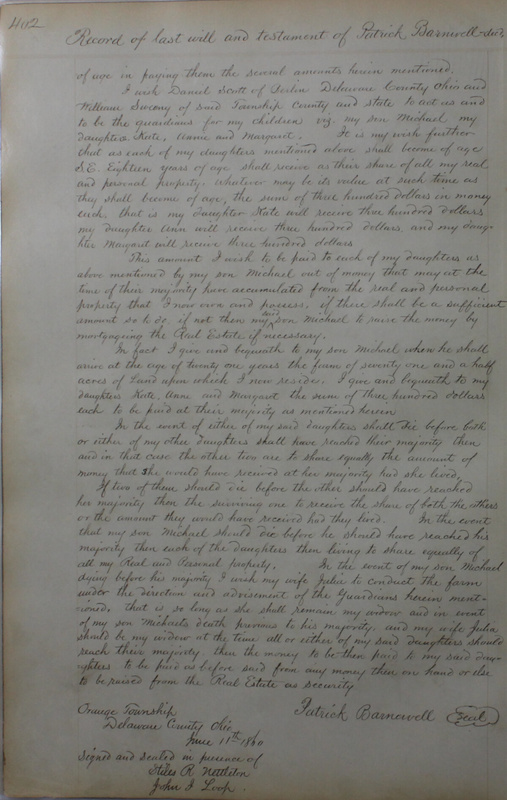 402
Record of last will and testament of Patrick Barnwell dec'd,
of use in paying them the several amounts herein mentioned.
I wish Daniel Scott of Berlin Delaware County Ohio and
William Sweeny of said Township County and state to act as and
to be the guardians for my children viz. my son Michael my
daughters Kate, Anne and Margaret. It is my wish further
that as each of my daughters mentioned above shall become of age
I.E. Eighteen years of age shall receive as their share of all my real
and personal property, whatever may be its value at such time as
they shall become of age, the sum of three hundred dollars in money
each. that is my daughter Kate will receive three hundred dollars
my daughter Ann will receive three hundred dollars, and my daug-
hter Margaret will receive three hundred dollars
This amount I wish to be paid to each of my daughters as
above mentioned by my son Michael out of money that may at the
time of their majority have accumulated from the real and personal
property that I now own and possess. if there shall be a sufficient
amount so to do, if not then my said son Michael to raise the money by
mortgageing the Real Estate if necessary.
In fact I give and bequeath to my son Michael when he shall
arive at the age of twenty one years the farm of seventy one and a half
acres of Land upon which I now reside. I give and bequeath to my
daughters Kate, Anne and Margaret the sum of three hundred dollars
each to be paid at their majority as mentioned herein
In the event of either of my said daughters shall die before both
or either of my other daughters shall have reached their majority then
and in that case the other two are to share equally the amount of
money that she would have received at her majority had she lived,
If two of them should die before the other should have reached
her majority then the surviving one to receive the share of both the others
or the amount they would have received had they lived. In the event
that my son Michael should die before he should have reached his
majority then each of the daughters then living to share equally of
all my Real and Personal property. In the event of my son Michael
dying before his majority I wish my wife Julia to conduct the farm
under the direction and advisement of the Guardians herein ment-
ioned, that is so long as she shall remain my widow and in event
of my son Michaels death previous to his majority. and my wife Julia
should be my widow at the time all or either of my said daughters should
reach their majority. then the money to be then paid to my said dau-
ghters to be paid as before said from any money then on hand or else
to be raised from the Real Estate as security
Patrick Barnewell Seal
Orange Township
Delaware County Ohio
June 11th 1860
Signed and sealed in presence of
Stiles R Nettleton
John J Loop.